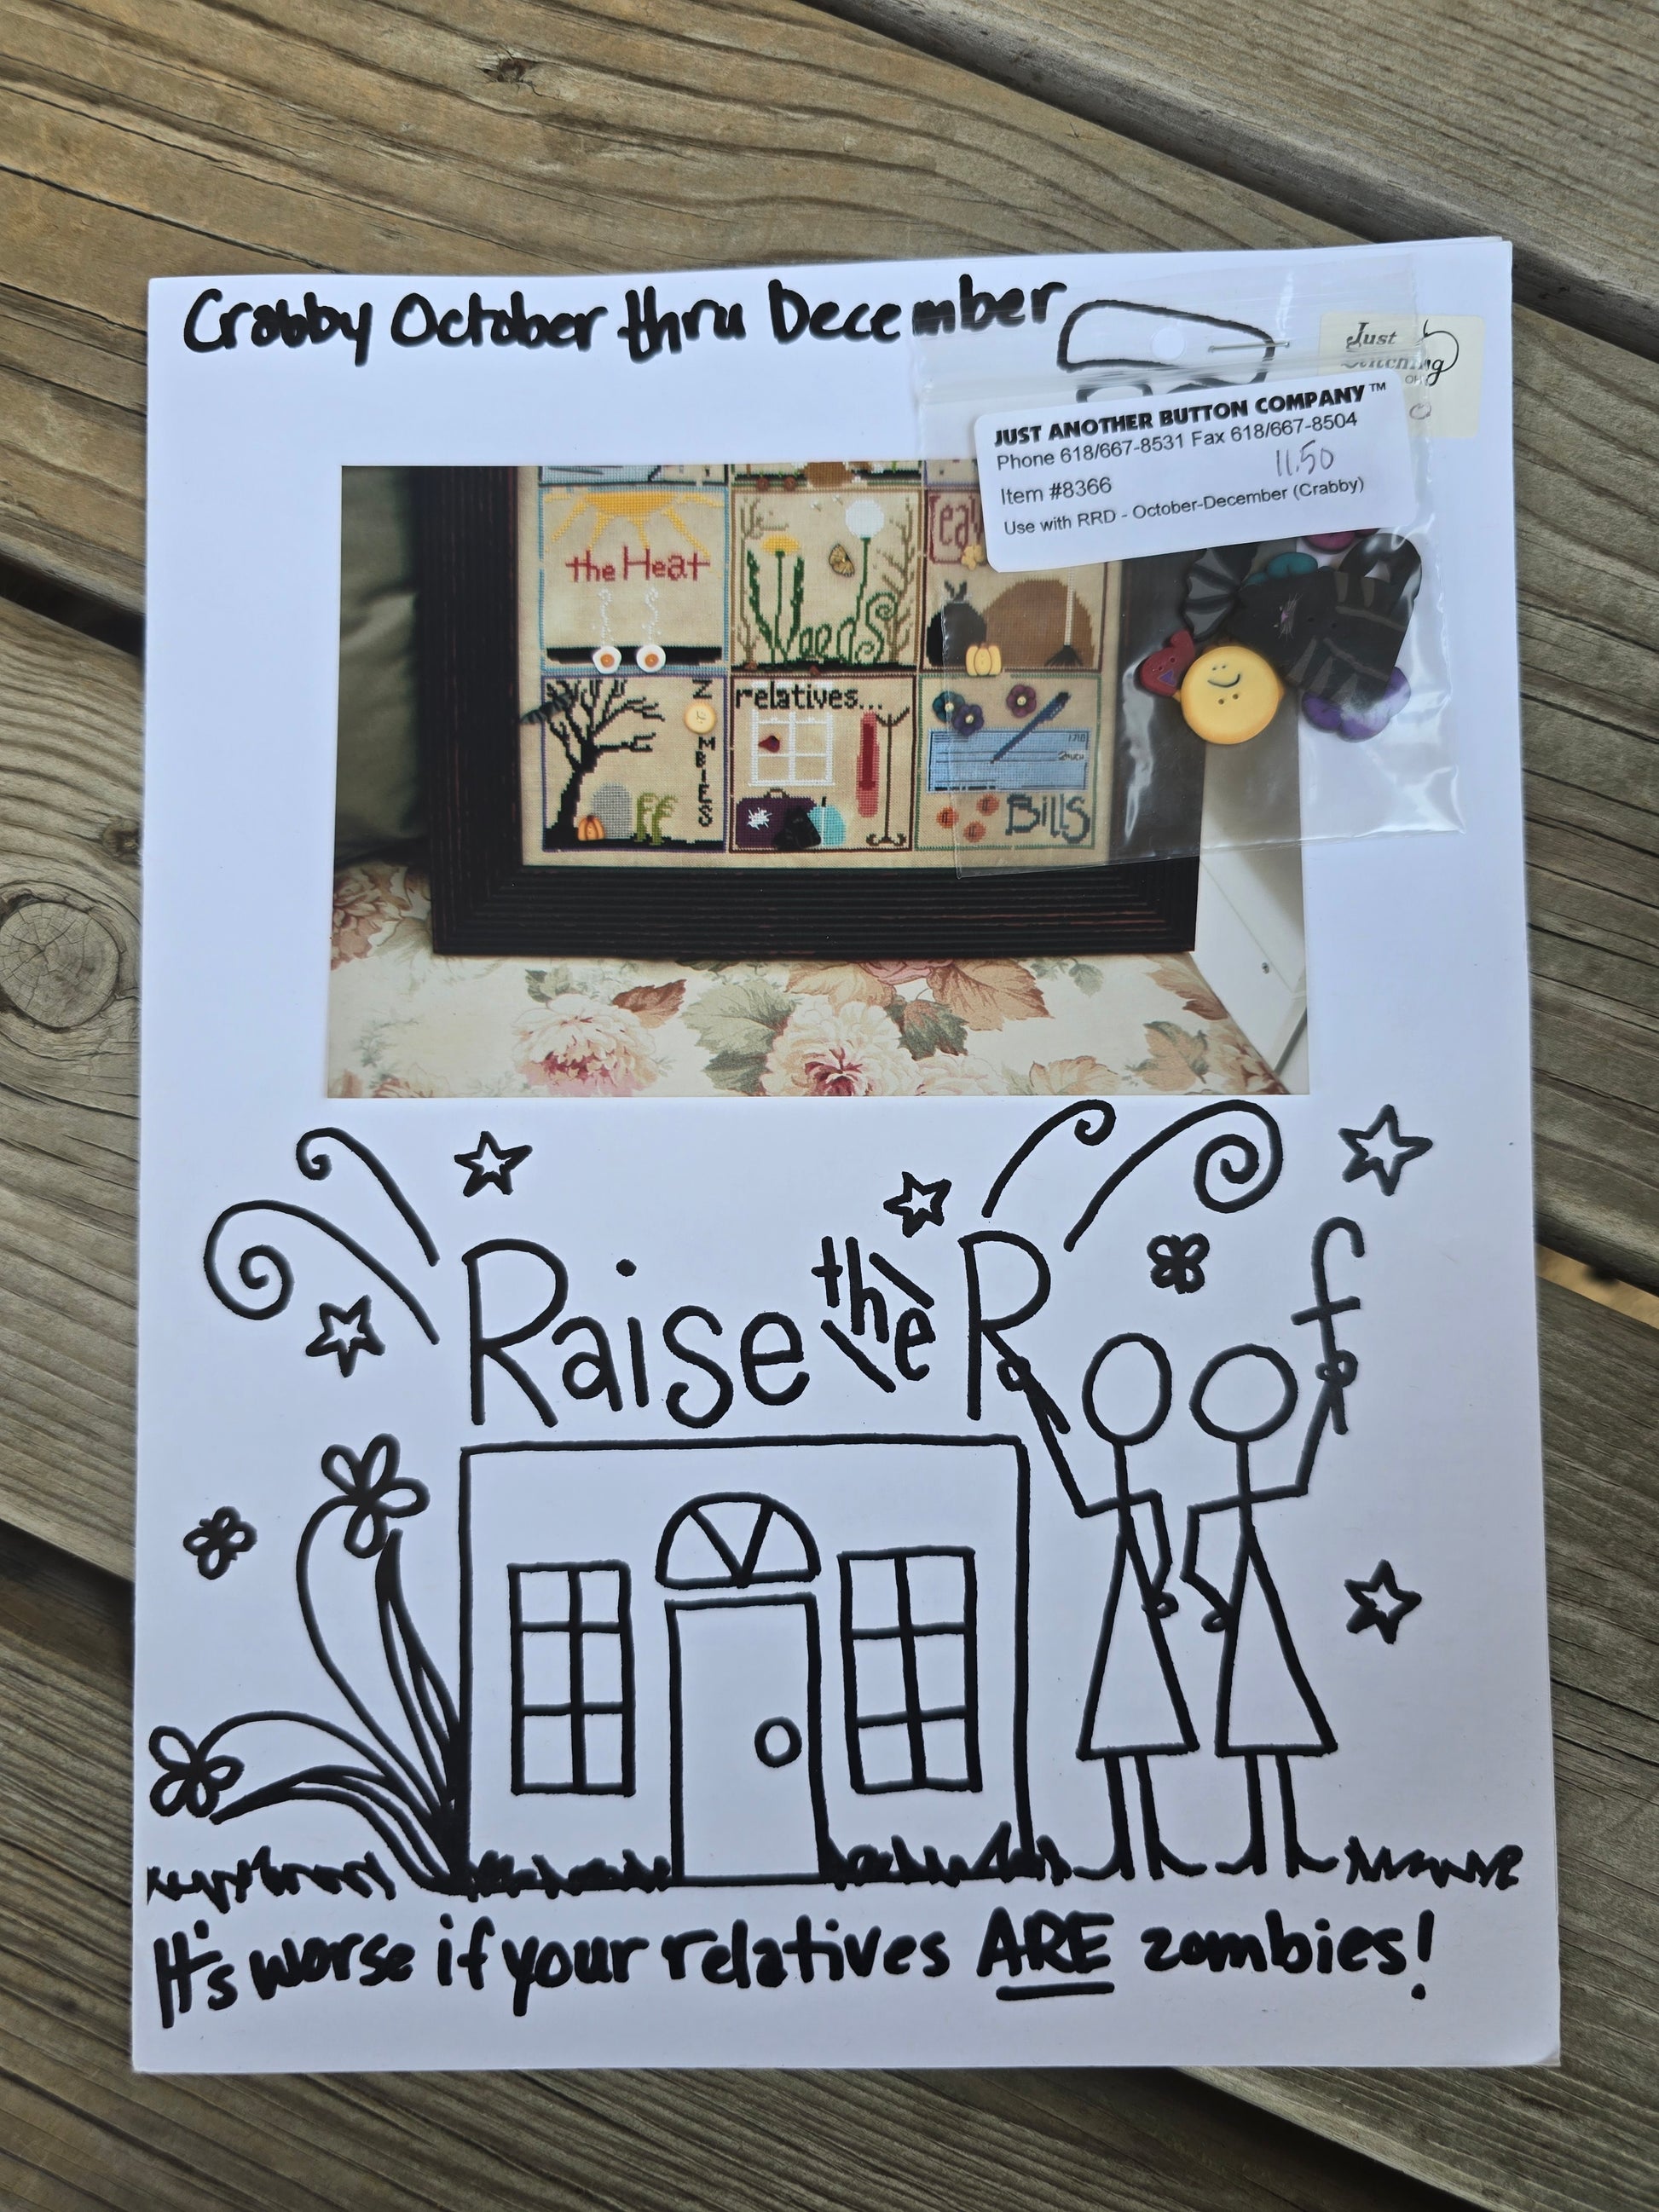 Crabby October thru December
Just
Stitching
OH
JUST ANOTHER BUTTON COMPANY™
Phone 618/667-8531 Fax 618/667-8504
11.50
Item #8366
Use with RRD - October-December (Crabby)
the Heat
Weeds
Leav
ZOMBIES
relatives...
1710
Bills
Raise the Roof
It's worse if your relatives ARE zombies!